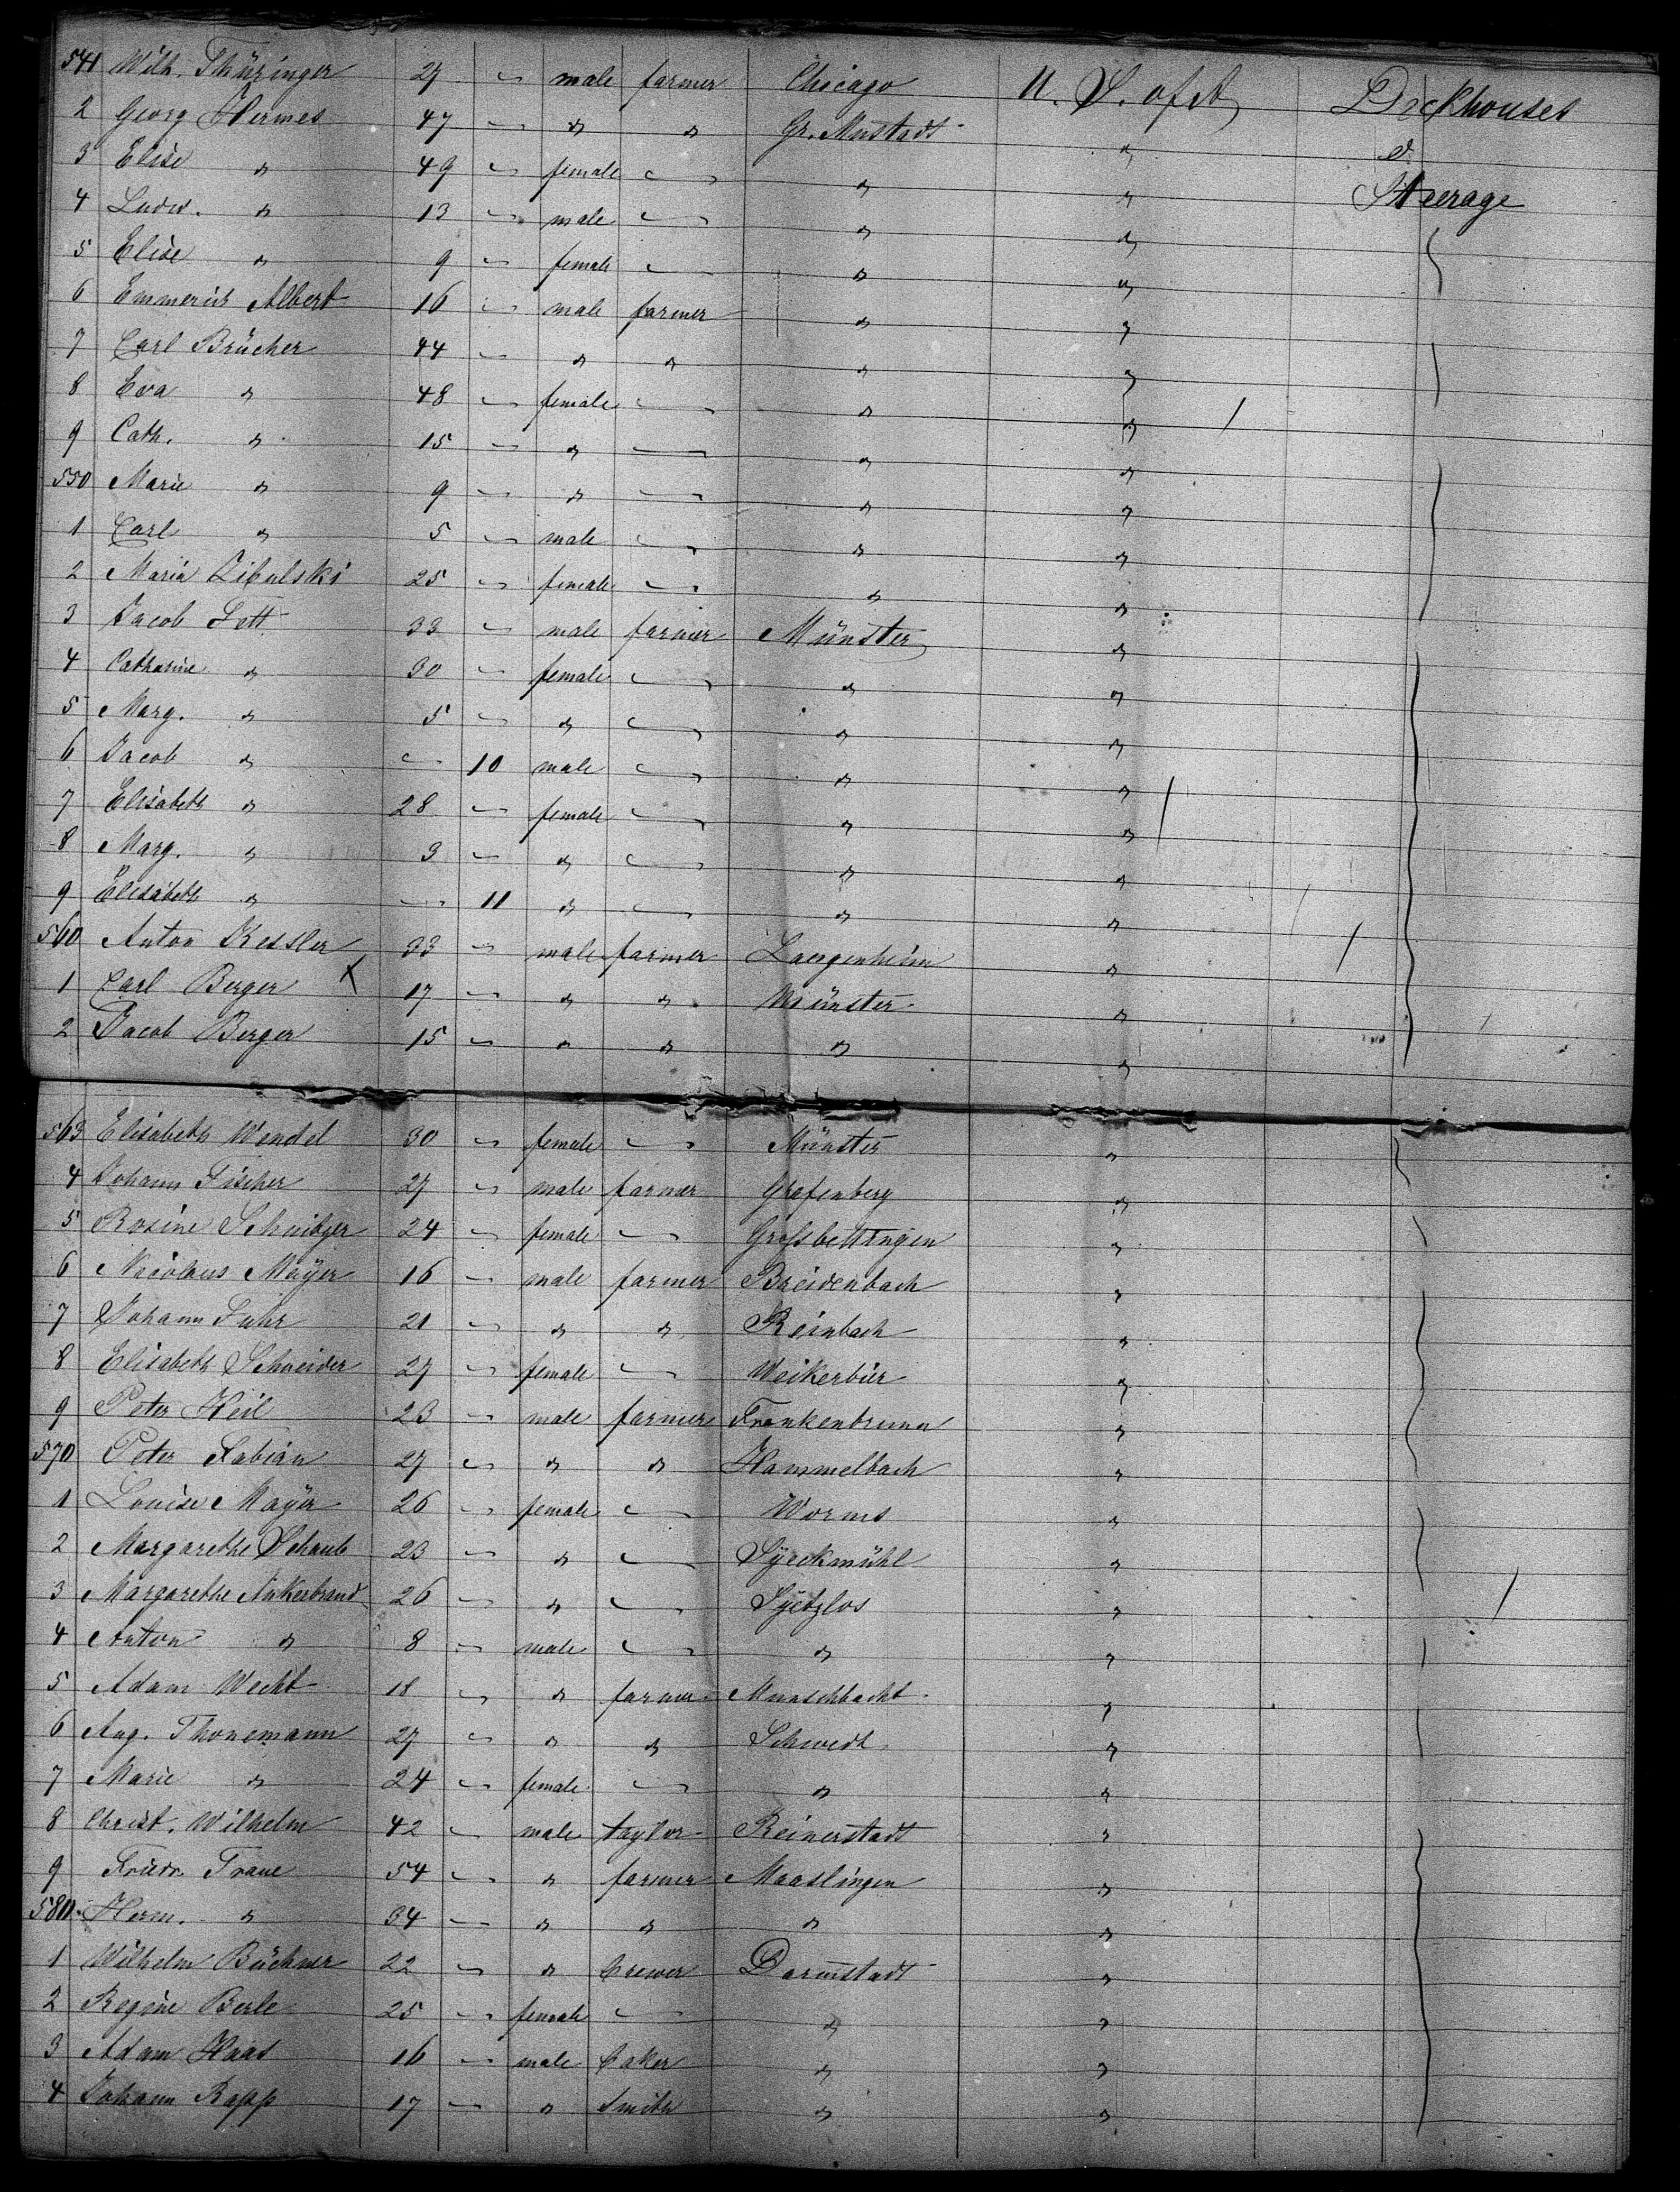 541 Wilh. Thüringer 27 — male farmer Chicago U. S. of A Deckhouses
2 Georg Hermes 47 — " " Gr. Umstadt " &
3 Elise " 49 — female — " " Steerage
4 Ludw. " 13 — male — " "
5 Elise " 9 — female — " "
6 Emmerich Albert 16 — male farmer " "
7 Carl Brücher 44 — " " " "
8 Eva " 48 — female — " "
9 Cath. " 15 — " — " "
550 Marie " 9 — " — " "
1 Carl " 5 — male — " "
2 Maria Zibulski 25 — female — " "
3 Jacob Lett 33 — male farmer Münster "
4 Catharine " 30 — female — " "
5 Marg. " 5 — " — " "
6 Jacob " — 10 male — " "
7 Elisabeth " 28 — female — " "
8 Marg. " 3 — " — " "
9 Elisabeth " — 11 " — " "
560 Anton Kessler 33 — male farmer Laergenheim "
1 Carl Berger X 17 — " " Münster "
2 Jacob Berger 15 — " " " "
563 Elisabeth Wendel 30 — female — Münster "
4 Johann Fischer 27 — male farmer Grafenberg "
5 Rosine 24 — female — Grossbettingen "
6 Nicolaus Mayer 16 — male farmer Breidenbach "
7 Johann Fuhr 21 — " " Reinbach "
8 Elisabeth Schneider 27 — female — "
9 Peter Keil 23 — male farmer Frankenbrunn "
570 Peter Fabian 27 — " " Hammelbach "
1 Louise Mayer 26 — female — Worms "
2 Margarethe Schaub 23 — " — "
3 Margarethe Ankerbrand 26 — " — "
4 Anton " 8 — male — " "
5 Adam Wecht 18 — " farmer "
6 Aug. Thonemann 27 — " " Schwedt "
7 Marie " 24 — female — " "
8 Christ. Wilhelm 42 — male taylor Reinerstadt "
9 Friedr. Traue 54 — " farmer Maaslingen "
580 Herm. " 34 — " " " "
1 Wilhelm Büchner 22 — " brewer Darmstadt "
2 Regine Berle 25 — female — " "
3 Adam Haas 16 — male baker " "
4 Johann Rapp 17 — " smith " "